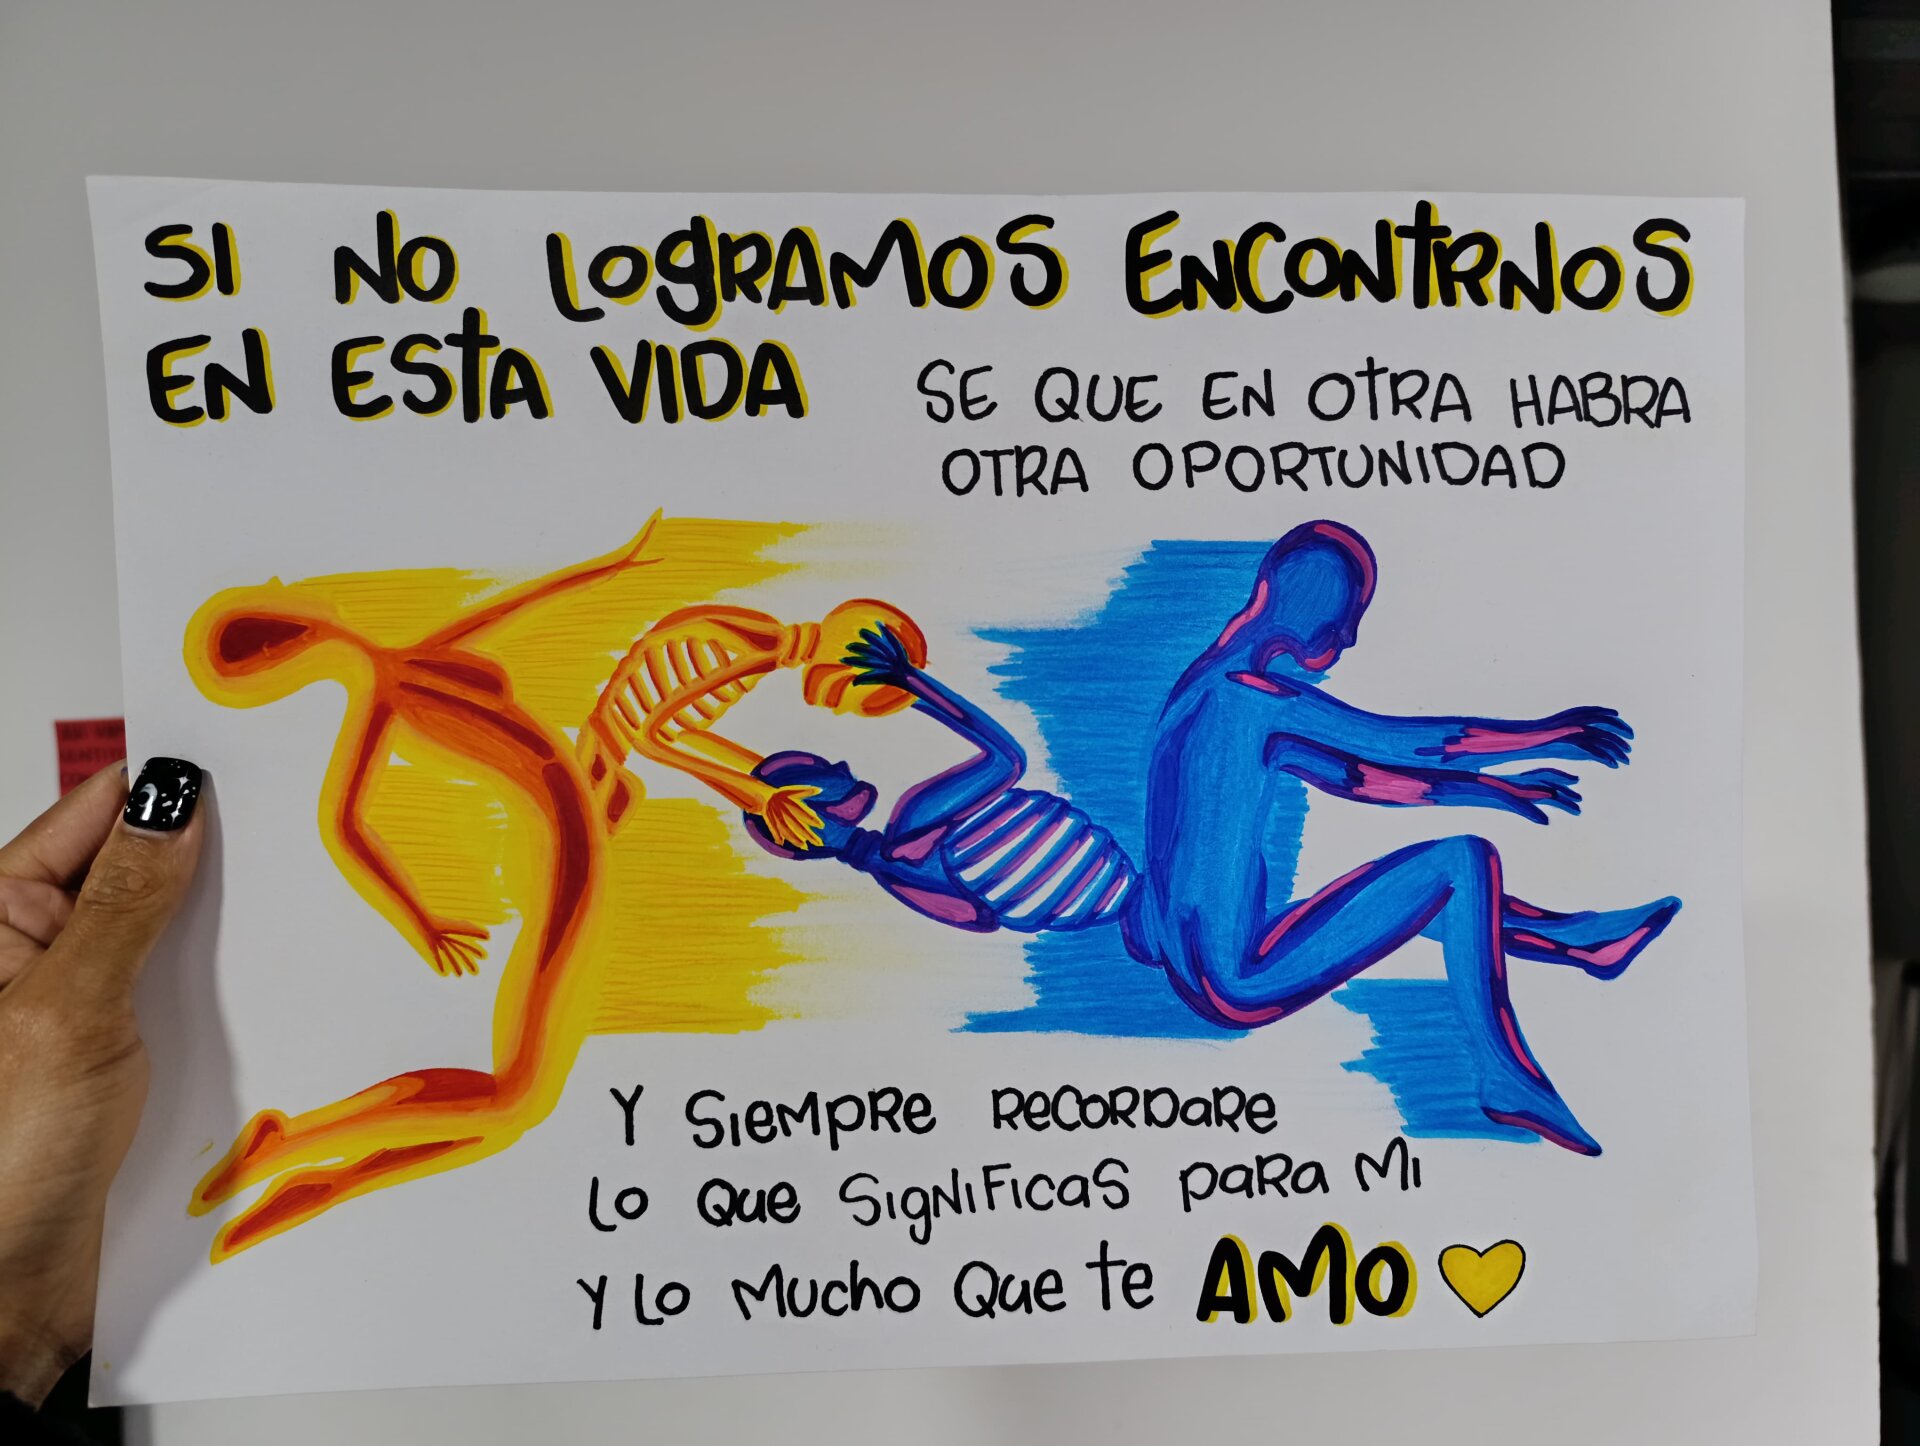 SI NO LOGRAMOS ENCONTRNOS
EN ESTA VIDA
SE QUE EN OTRA HABRA
OTRA OPORTUNIDAD
Y SIEMPRE RECORDARE
LO QUE SIGNIFICAS PARA MI
Y LO MUCHO QUE TE AMO